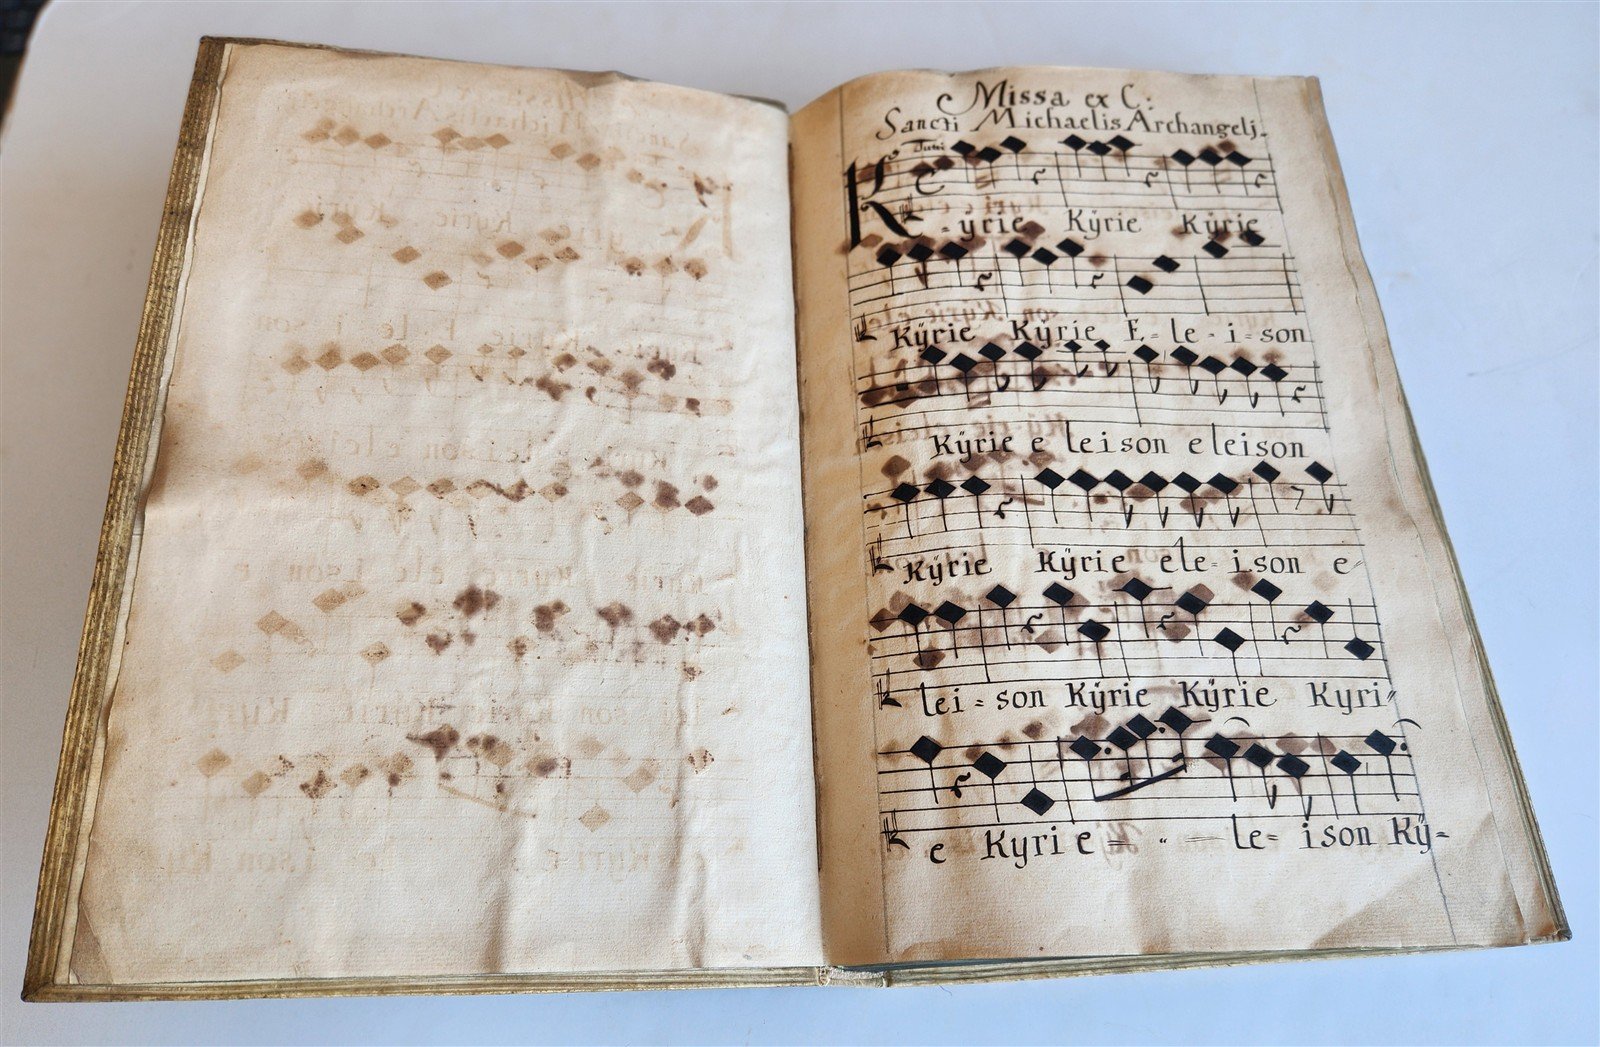 Missa ex C:
Sancti Michaelis Archangelj.
Tutti
K-ÿrie Kÿrie Kÿrie
Kÿrie Kÿrie E-le-i-son
Kÿrie e leison eleison
Kÿrie Kÿrie ele-ison e-
lei-son Kÿrie Kÿrie Kyri
e Kyrie le-ison Kÿ-